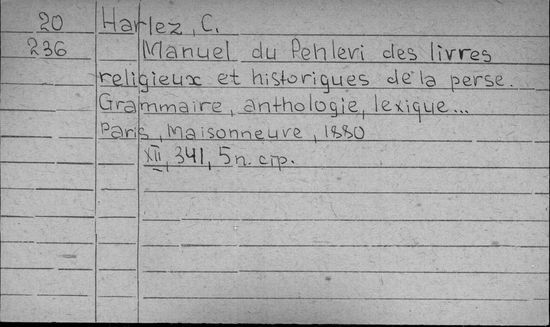 20 Harlez, C.
236 Manuel du Pehlevi des livres
religieux et historiques de la perse.
Grammaire, anthologie, lexique...
Paris, Maisonneuve, 1880
XII, 341, 5 n. стр.